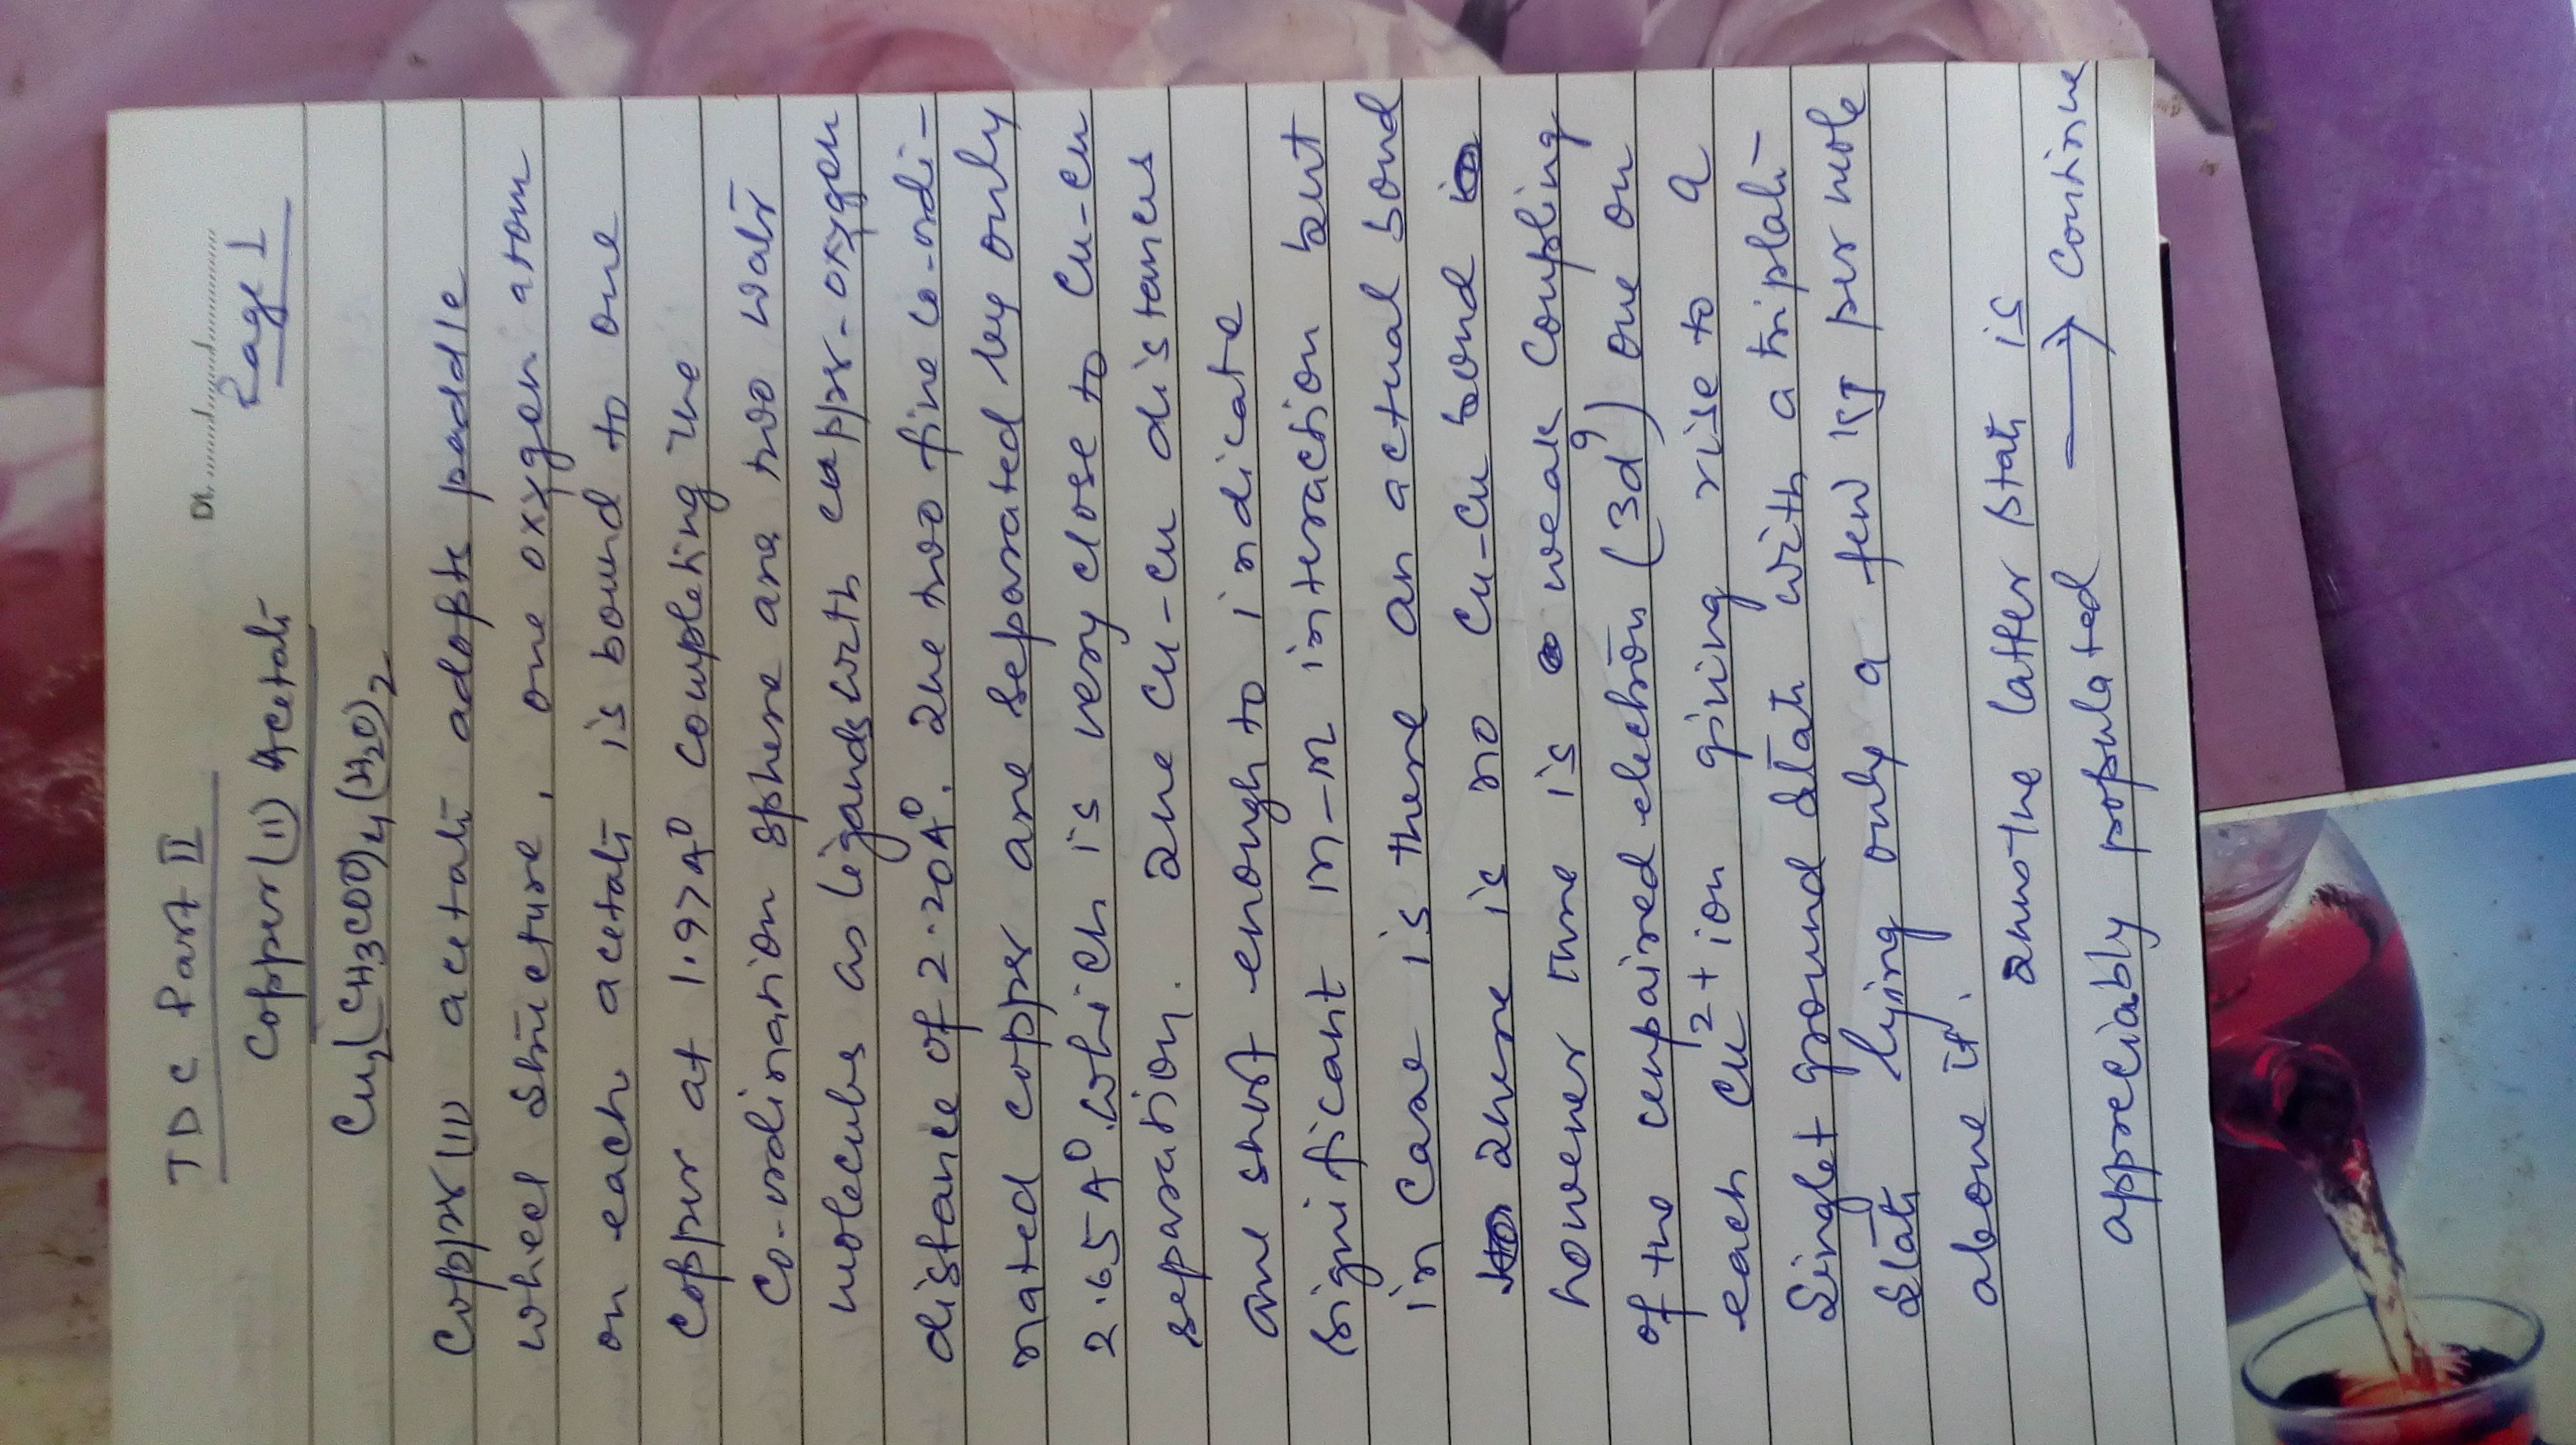 TDC Part II
Dt.
Page 1
Copper (II) Acetate
Cu2(CH3COO)4(H2O)2
Copper (II) acetate adopts paddle
wheel structure, one oxygen atom
on each acetate is bound to one
Copper at 1.97A° completing the
Co-ordination sphere are two water
molecules as ligands with copper-oxygen
distance of 2.20A°. The two five co-ordi-
nated copper are separated by only
2.65A°. which is very close to Cu-Cu
separation. The Cu-Cu distances
are short enough to indicate
significant M-M interaction but
in case is there an actual bond
There is no Cu-Cu bond
however there is weak coupling
of the unpaired electron (3d9) one on
each Cu2+ ion giving rise to a
Singlet ground state with a triplate
state lying only a few KJ per mole
above it.
the latter state is
appreciably populated → Continue